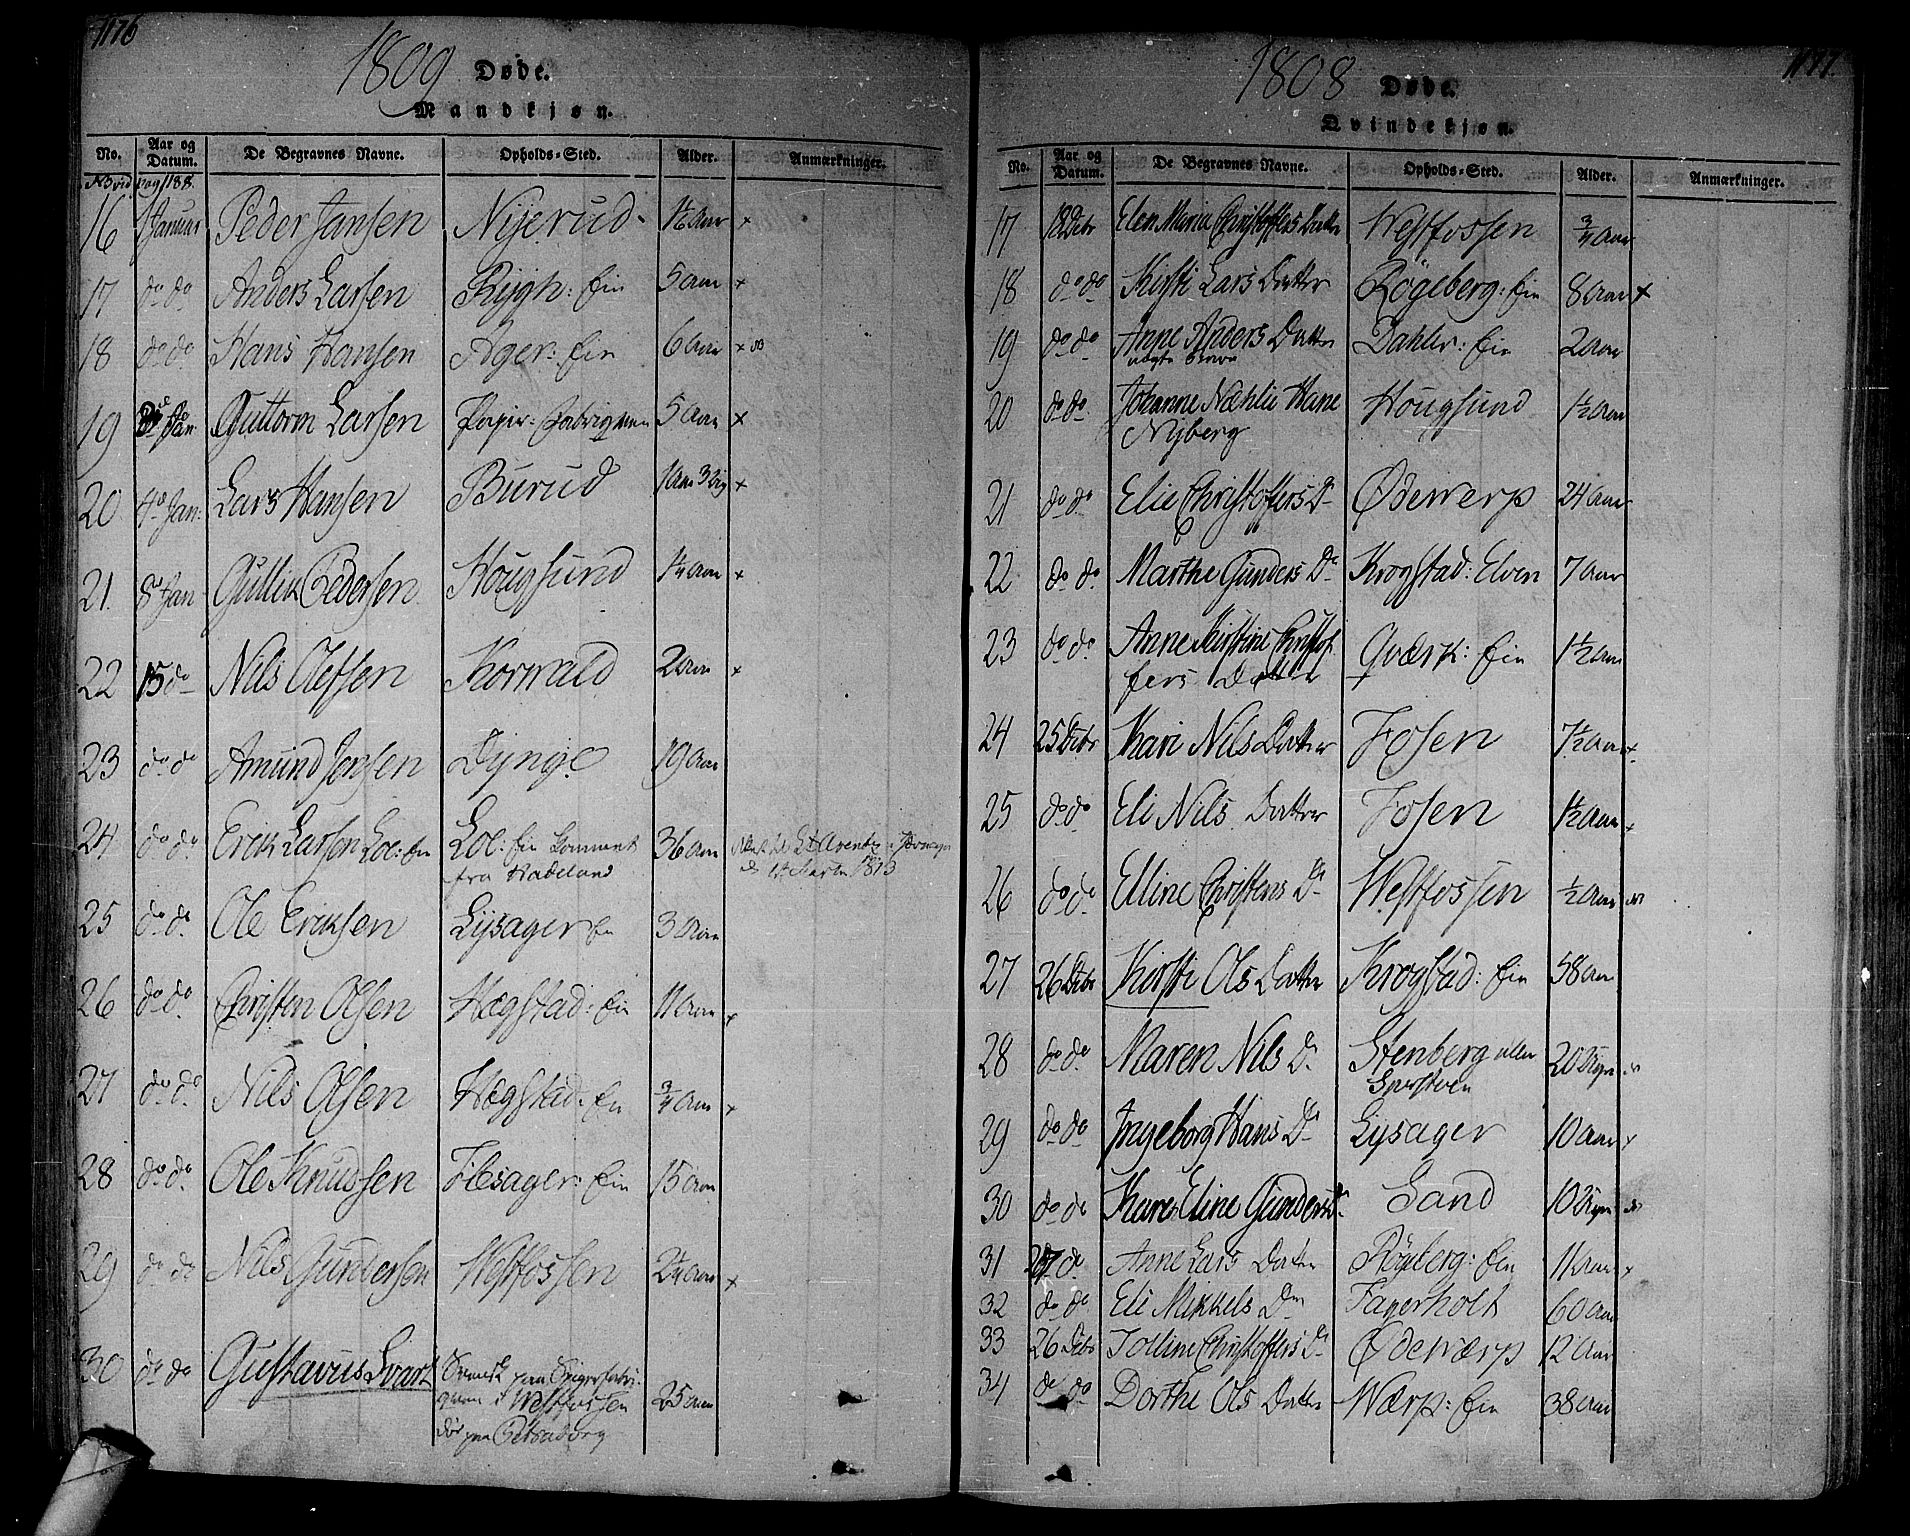 1176
1809 Døde.
Mandkjøn.
No. Aar og Datum. De Begravnes Navne. Opholds-Sted. Alder. Anmærkninger.
NB vid pag 1188.
16 1 Januar Peder Jansen Nijerud 1½ Aar x
17 do do Anders Larsen Rijgh: Ein 5 Aar x
18 do do Hans Hansen Ager: Ein 6 Aar x
19 Jan: Guttorm Larsen Papir: Fabriqven 5 Aar x
20 4de Jan: Lars Hansen Burud 1 Aar 3 x
21. 8de Jan Gullik Pedersen Hougsund 1¼ Aar x
22 15 do Nils Olessen Korwald 2 Aar x
23 do do Amund Jensen Dynge 19 Aar
24 do do Erik Larsen Loe: Ein Loe: Ein kommen 36 Aar
fra Hadeland 1813
25 do do Ole Eriksen Lysager Ein 3 Aar
26 do do Christen Olsen Hægstad: Ein 11 Aar x
27 do do Nils Olsen Hægstad: Ein ¾ Aar x
28 do do Ole Knudsen Foesager: Ein 15 Aar
29 do do Nils Gundersen Westfossen 2¼ Aar x
30 do do Gustavus Svart Svensk paa Spigerfabri-
quen i Westfossen 25 Aar
død paa
1177.
1808 Døde.
Qvindekjøn.
No. Aar og Datum. De Begravnes Navne. Opholds-Sted. Alder. Anmærkninger.
17 18 Debr Elen Maria Christoffers Datter Westfossen ¾ Aar
18 do do Kisti Lars Datter Røgeberg: Ein 8 Aar x
19 do do Anne Anders Datter Dahler: Ein 2 Aar
20 do do Johanne Hane Hougsund 1½ Aar
Nyberg
21 do do Elie Christoffers Dr Ødewerp 24 Aar
22 do do Marthe Gunders Dr Krogstad: Elven 7 Aar
23 do do Anne Kirstine Christof-
fers Datter Qværk: Ein 1½ Aar
24 25 Debr Kari Nils Datter Fosen 7½ Aar x
25 do do Eli Nils Datter Fosen 1½ Aar x
26 do do Elline Christens Dr Westfossen ½ Aar
27 26 Debr Kirsti Ols Datter Krogstad: Ein 58 Aar
28 do do Maren Nils Dr Stenberg eller 20 Uger
29 do do Ingeborg Hans Dr Lysager 10 Aar x
30 do do Karen Eline Gunders Dr Sand 10 Uger
31 27 do Anne Lars Datter Røgberg: Ein 11 Aar x
32 do do Eli Mikkels Dr Fagerholt 60 Aar
33 26 Debr Jolline Christoffers Dr Ødeværp 12 Aar
34 do do Dorthe Ols Datter Wærp: Ein 38 Aar